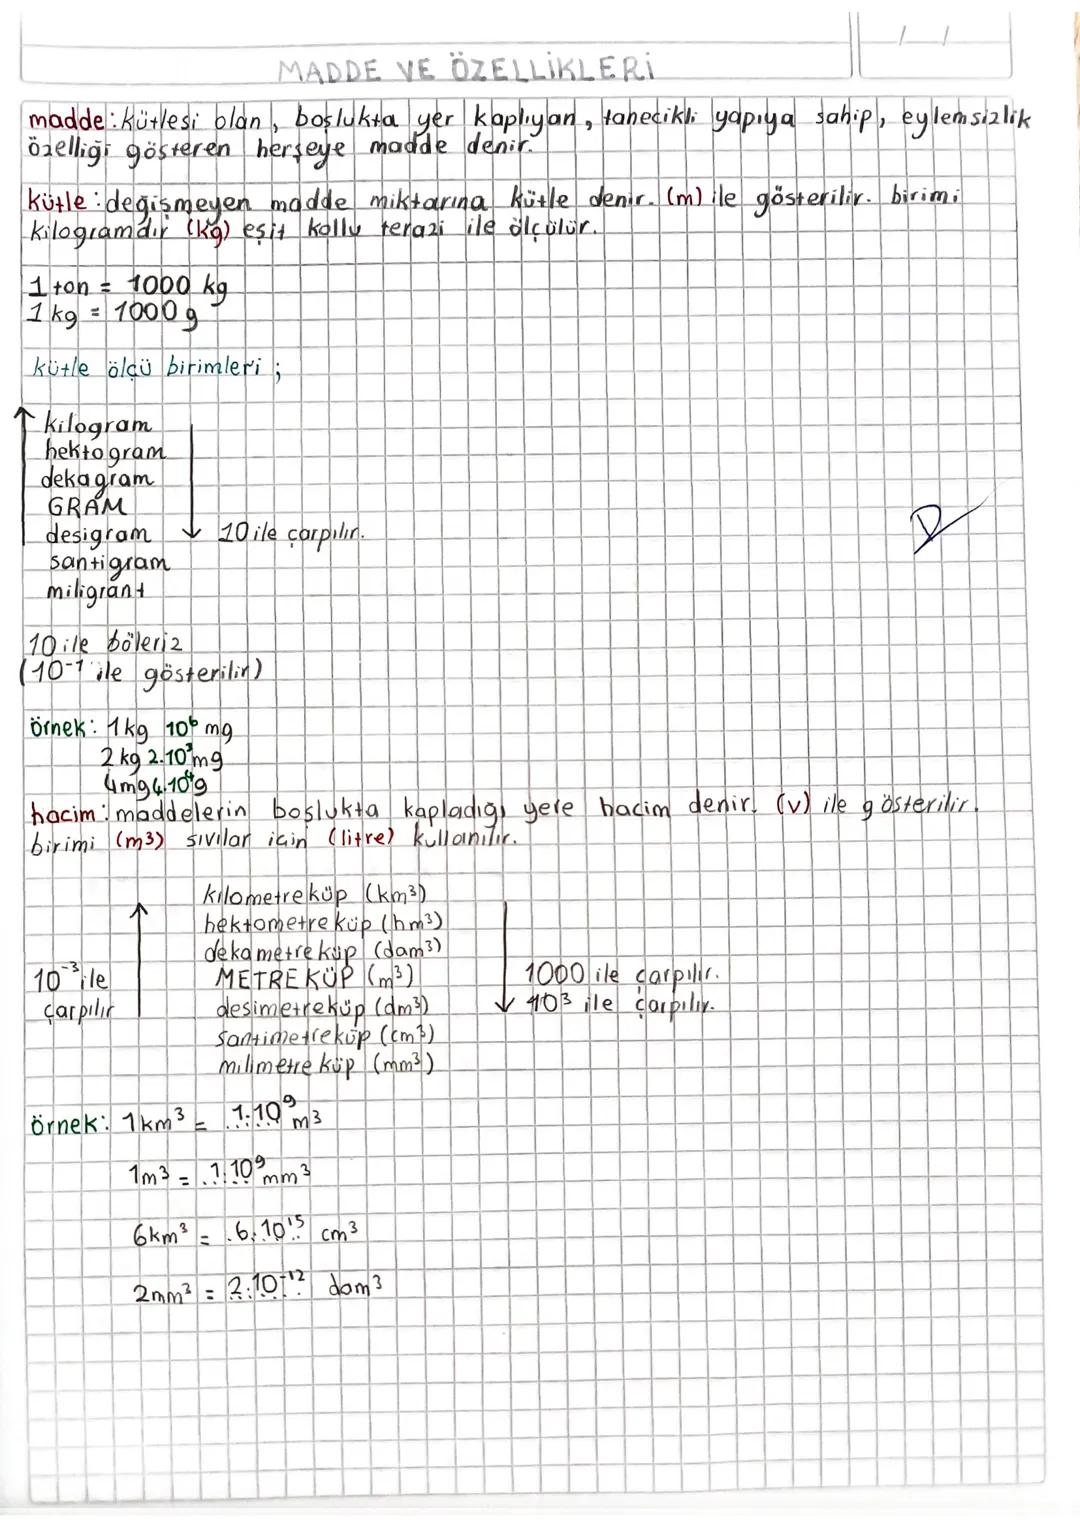 / /
MADDE VE ÖZELLİKLERİ
madde: kütlesi olan, boşlukta yer kaplıyan, tanecikli yapıya sahip, eylemsizlik
özelliği gösteren herşeye madde denir.
kütle: değişmeyen madde miktarına kütle denir. (m) ile gösterilir. birimi
kilogramdır (kg) eşit kollu terazi ile ölçülür.
1 ton = 1000 kg
1 kg = 1000 g
kütle ölçü birimleri;
kilogram
hektogram
dekagram
GRAM
desigram 10 ile çarpılır.
santigram
miligrant
10 ile böleriz
(10⁻¹ ile gösterilir)
örnek: 1kg 10⁶ mg
2 kg 2.10³ mg
4mg 4.10⁴ g
hacim: maddelerin boşlukta kapladığı yere hacim denir. (v) ile gösterilir.
birimi (m3) sıvılar için (litre) kullanılır.
kilometreküp (km³)
hektometreküp (hm³)
dekametreküp (dam³)
METREKÜP (m³)
desimetreküp (dm³)
santimetreküp (cm³)
milimetreküp (mm³)
10⁻³ ile
çarpılır
1000 ile çarpılır.
103 ile çarpılır.
örnek: 1km³ = 1.10⁹ m3
1m3 = 1.10⁹ mm³
6km³ = 6.10¹⁵ cm³
2mm³ = 2.10⁻¹² dam³